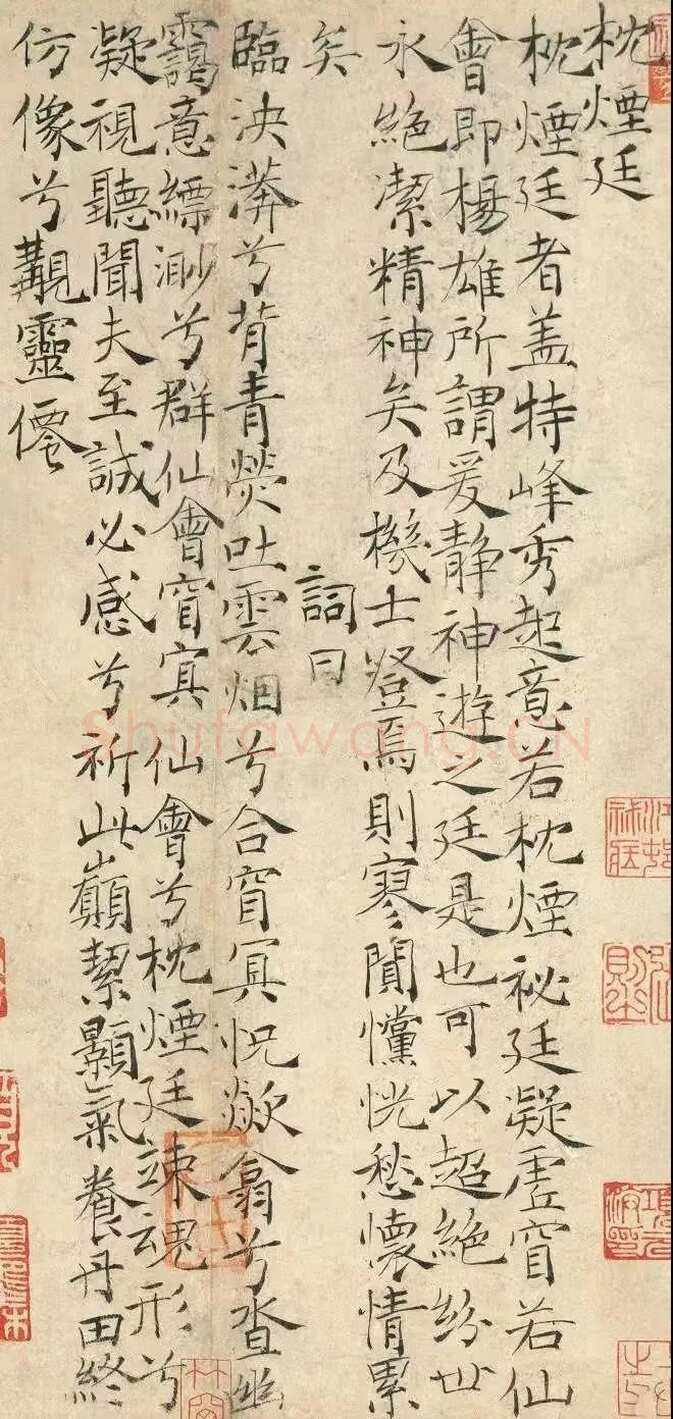 枕煙廷
枕煙廷者盖特峰秀起意若枕煙祕廷凝虛窅若仙
會即楊雄所謂爰静神遊之廷是也可以超絕紛世
永絕潔精神矣及機士登焉則寥闃戃恍愁懷情累
矣 詞曰
臨泱漭兮背青熒吐雲烟兮合窅冥怳欻翕兮沓幽
靄意縹渺兮群仙會窅冥仙會兮枕煙廷竦魂形兮
凝視聽聞夫至誠必感兮祈此巔絜顥氣養丹田終
仿像兮覯靈僊
Shufawang.CN